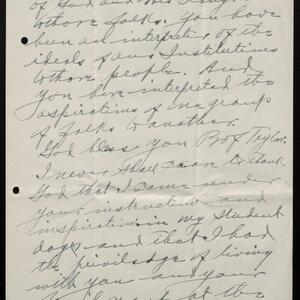 of God and his Kingdom
to those folks. You have
been an interpreter of the
ideals of our Institutions
to those people. And
you have interpreted the
aspirations of one group
of folks to another.
God bless you Prof Taylor.
I never shall cease to thank
God that I came under
your instruction and
inspiration in my student
days and that I had
the priviledge of living
with you and your
at the